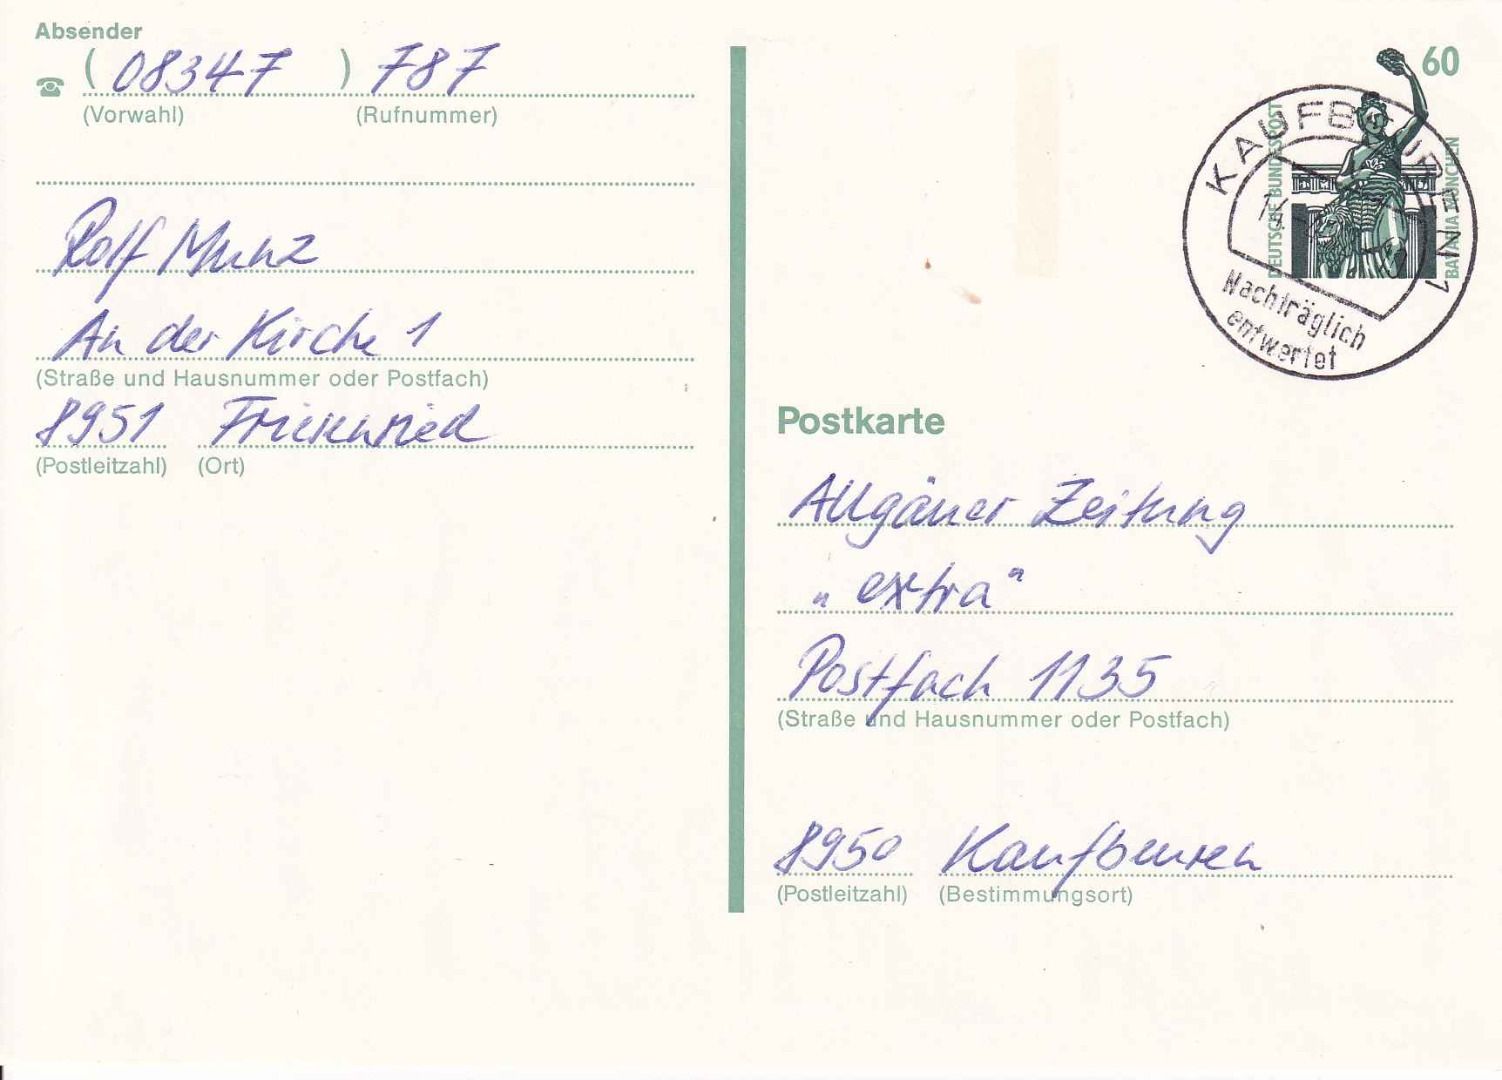 Absender
(08347) 787
(Vorwahl) (Rufnummer)
Rolf Munz
An der Kirche 1
(Straße und Hausnummer oder Postfach)
8951 Friesenried
(Postleitzahl) (Ort)
60
DEUTSCHE BUNDESPOST
BAVARIA MÜNCHEN
KAUFBEUREN 1
Nachträglich
entwertet
Postkarte
Allgäuer Zeitung
„extra“
Postfach 1135
(Straße und Hausnummer oder Postfach)
8950 Kaufbeuren
(Postleitzahl) (Bestimmungsort)